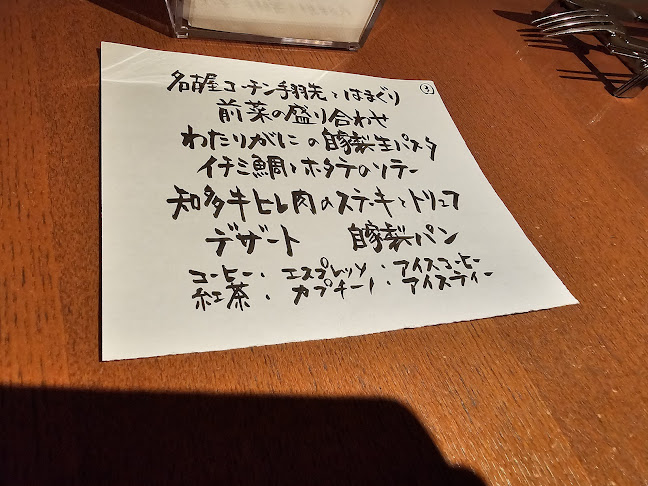 ③
名古屋コーチン手羽先とはまぐり
前菜の盛り合わせ
わたりがにの自家製生パスタ
イチミ鯛とホタテのソテー
知多牛ヒレ肉のステーキとトリュフ
デザート 自家製パン
コーヒー・エスプレッソ・アイスコーヒー
紅茶・カプチーノ・アイスティー